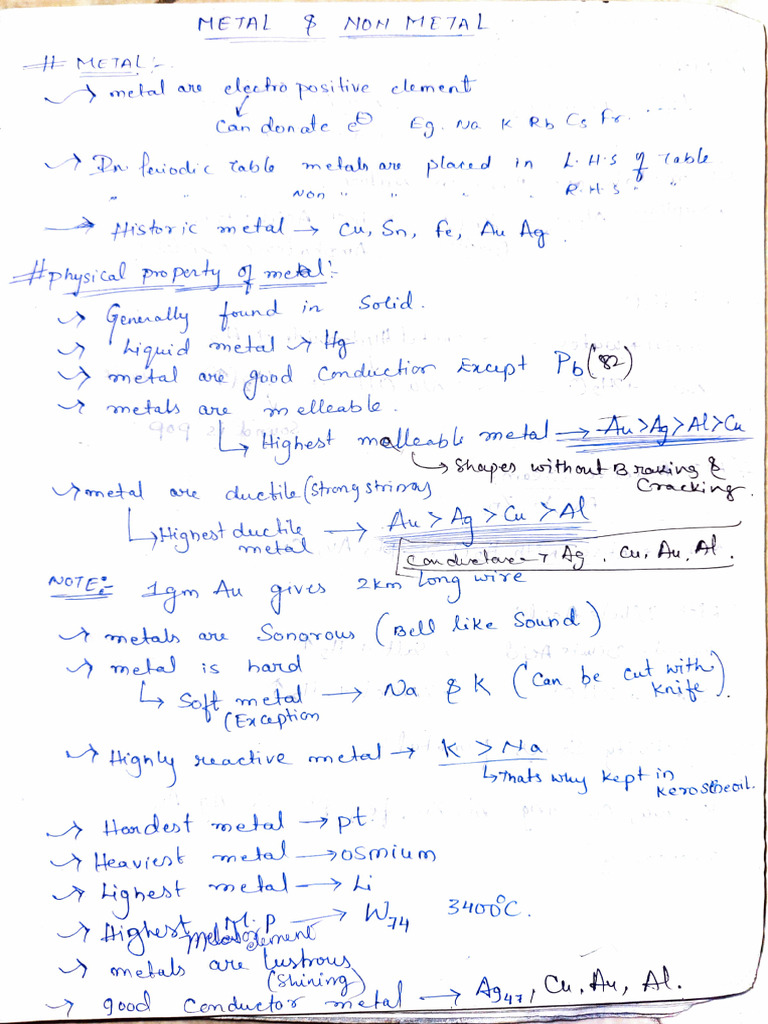 METAL & NON METAL
# METAL:-
→ metal are electro positive element
Can donate e⊖ Eg. Na K Rb Cs Fr.
→ In Periodic Table metals are placed in L.H.S of Table
" " Non " " " " R.H.S " "
→ Historic metal → Cu, Sn, Fe, Au Ag.
# physical property of metal:-
→ Generally found in Solid.
→ Liquid metal → Hg
→ metal are good Conduction Except Pb (82)
→ metals are melleable.
↳ Highest malleable metal → Au > Ag > Al > Cu
↳ Shapes without Braking & Cracking.
→ metal are ductile (Strong strings
↳ Highest ductile metal → Au > Ag > Cu > Al
Conductance → Ag, Cu, Au, Al.
NOTE:- 1gm Au gives 2km long wire
→ metals are Sonorous (Bell like Sound)
→ metal is hard
↳ Soft metal → Na & K (Can be cut with Knife).
(Exception
→ Highly reactive metal → K > Na
↳ thats why kept in
Kerosene oil.
→ Hardest metal → pt
→ Heaviest metal → osmium
→ Lighest metal → Li
→ Highest M.P → W74 3400°C.
Metal or element
→ metals are Lustrous
(Shining)
→ good Conductor metal → Ag47, Cu, Au, Al.